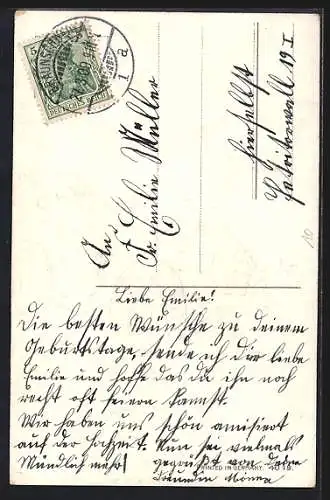 BRAUNSCHWEIG
1 a
5
DEUTSCHES REICH
An
Fr. Emilie Müller
hierselbst
Petritorwall 19 I
Liebe Emilie!
Die besten Wünsche zu deinem
Geburtstage, sende ich dir liebe
Emilie und hoffe das du ihn noch
recht oft feiern kannst.
Wir haben uns schön amüsiert
auf der Hochzeit. Nun sei vielmals
Mündlich mehr! gegrüßt von deiner
Freundin
PRINTED IN GERMANY.